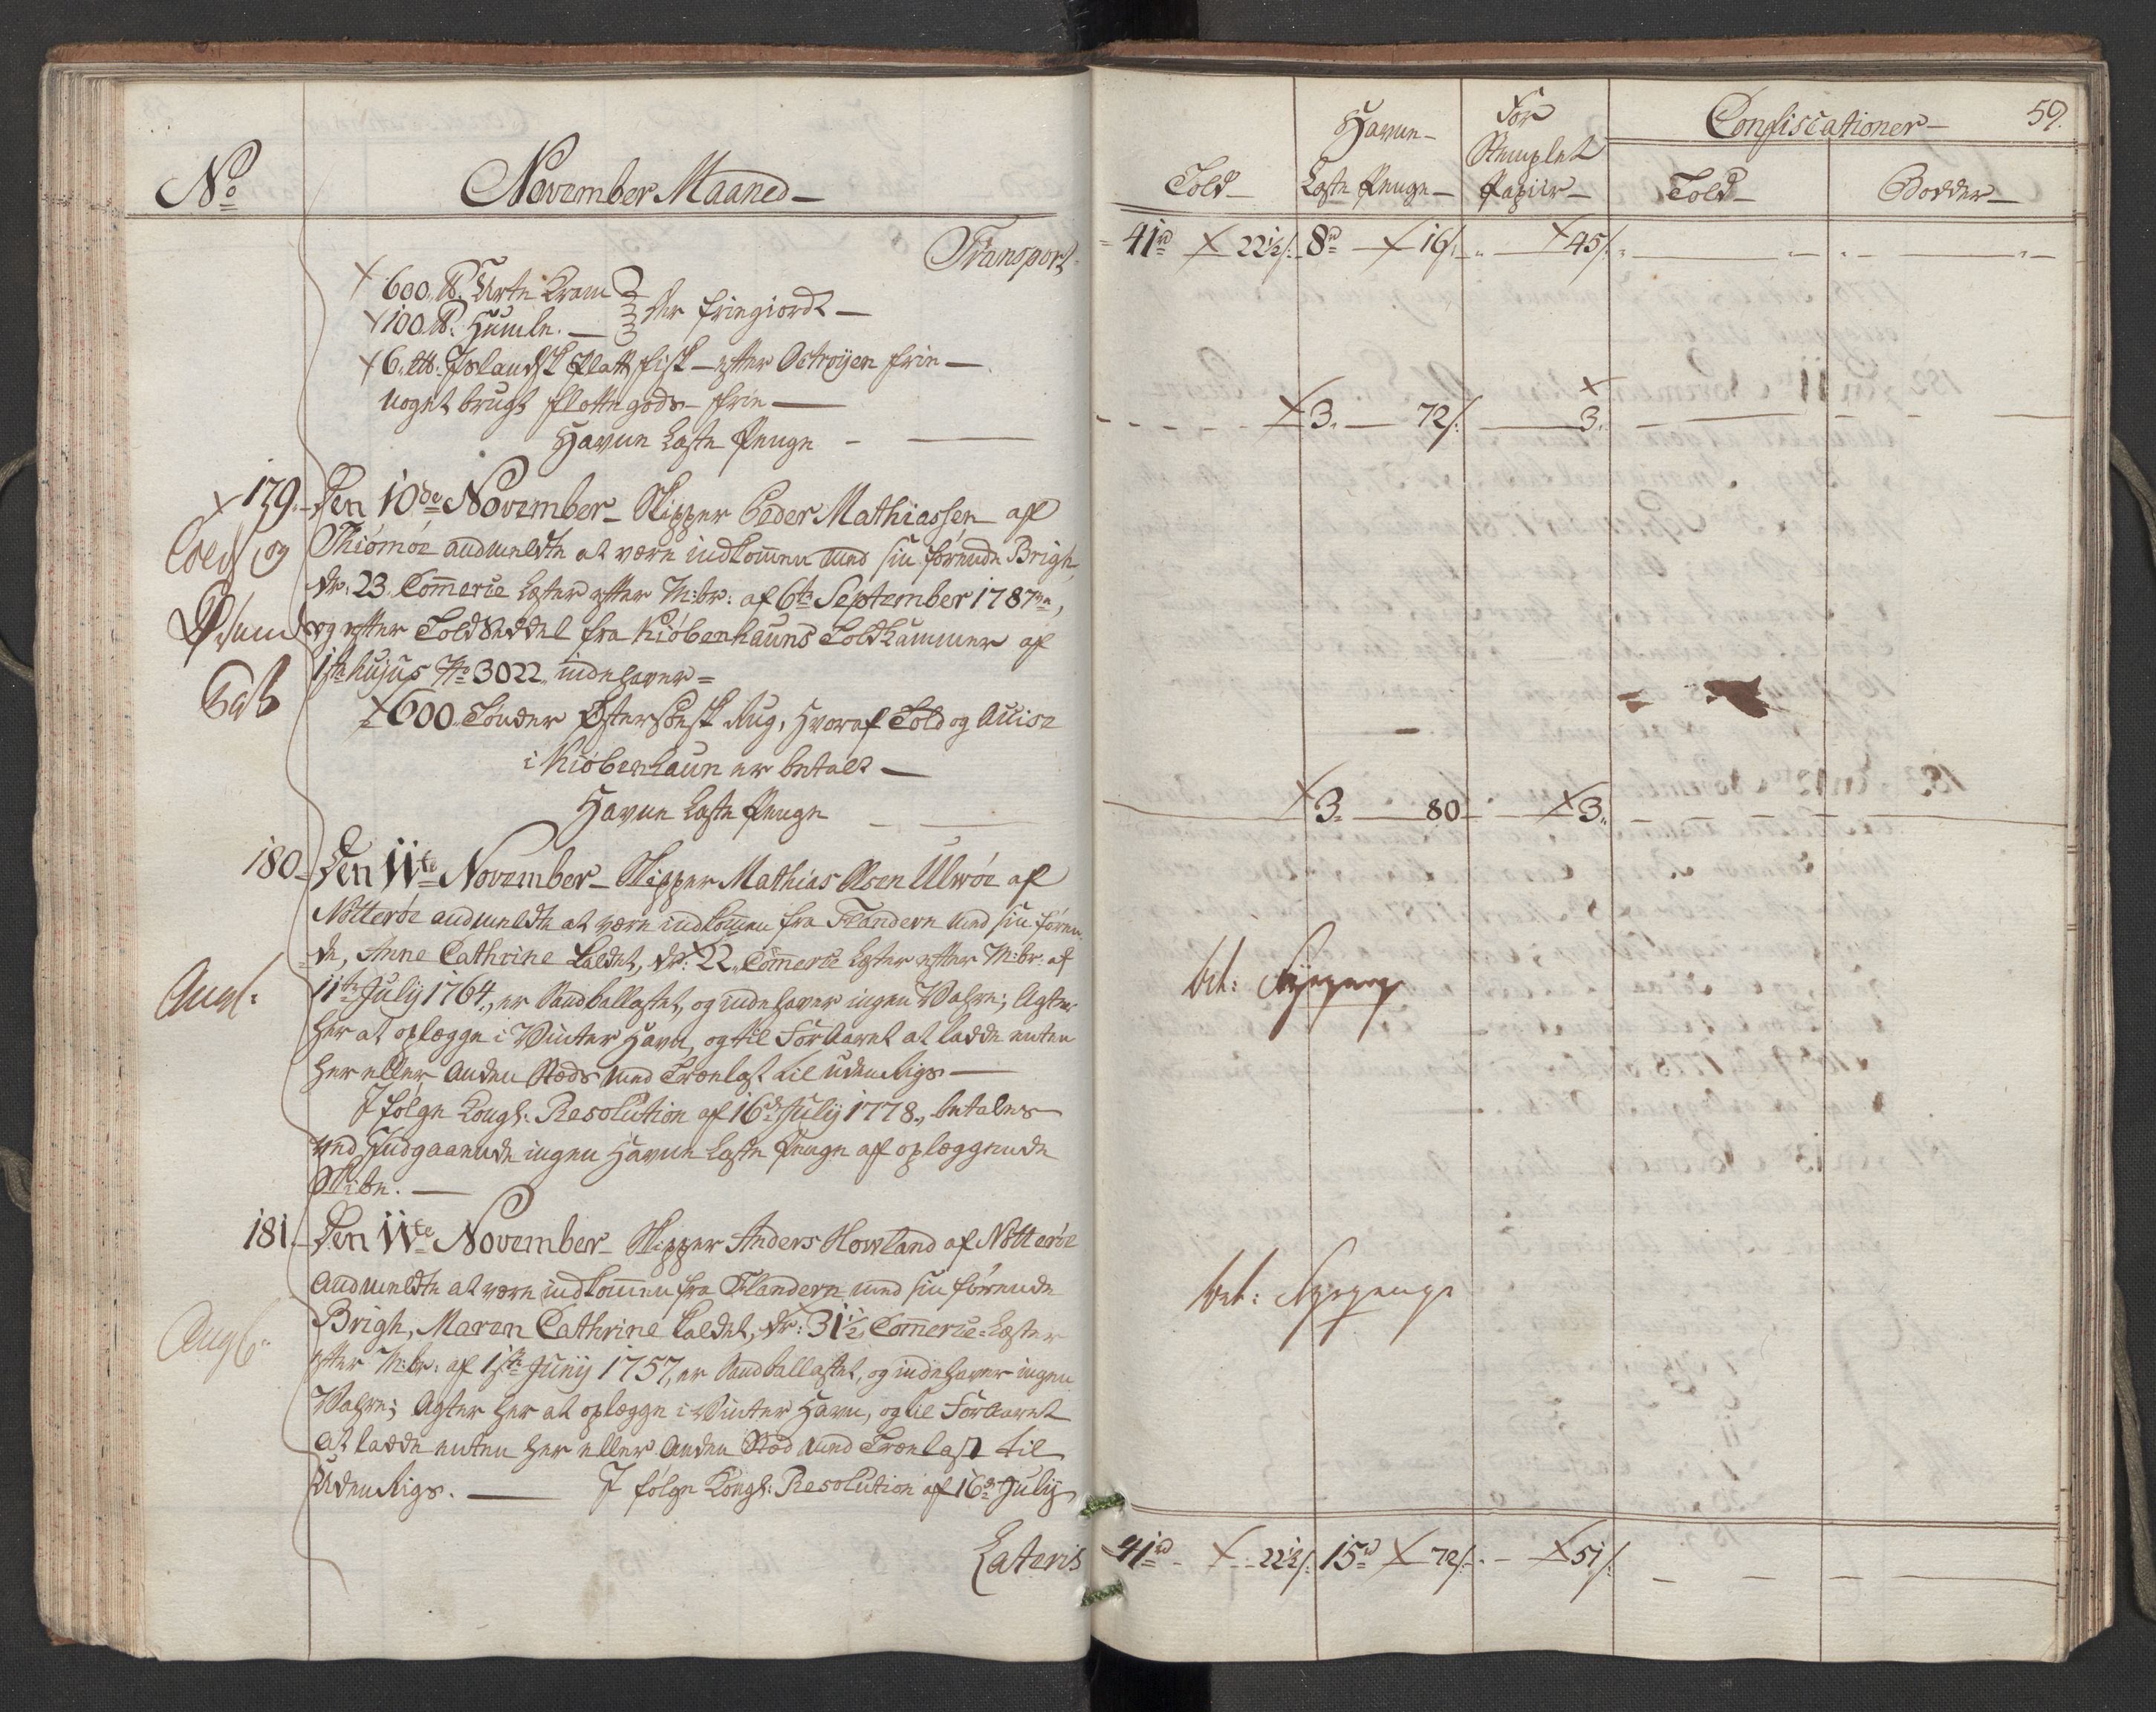 No
November Maaned
Transport
600 ℔. Urte Kram
100 ℔. Humle.
er friegiordt
6. Islandsk Platt fisk efter Octroyen frie
noget brugt flotte gods frie
Havne Laste Penge
179. Den 10de November Skipper Peder Mathiassen af
Thiömöe anmeldte at være indkommen med sin förende Brigh,
dr. 23 Commerce Læster efter M:br: af 6te September 1787,
og efter Told Seddel fra Kiöbenhauns Told Kammer af
1ste hujus No 3022 indehaver
600 Tönder Östersöesk Rug, hvoraf Told og Accise
i Kiöbenhaun er betalt
Havne Laste Penge
180. Den 11te November Skipper Mathias Olsen Ulwöe af
Nötteröe anmeldte at være indkommen fra Flandern med sin fören-
de, Anne Cathrine kaldet, dr: 22 Commerce Læster efter M:br: af
11te Julij 1764, er Sandballastet, og indehaver ingen Vahre; Agter
her at oplægge i Vinter Havn, og til Foraaret at ladde enten
her eller anden Steds med Trælast til uden Rigs
I fölge Kongl: Resolution af 16de Julij 1778, betales
ved Indgaaende ingen Havne Laste Penge af oplæggende
Skibe.
181. Den 11te November Skipper Anders Howland af Nötteröe
anmeldte at være indkommen fra Flandern med sin förende
Brigh, Maren Cathrine kaldet, dr: 31 1/2 Commerce Læster
efter M:br: af 1ste Junij 1757, er Sandballastet, og indehaver ingen
Vahre; Agter her at oplægge i Vinter Havn, og til Foraaret
at ladde enten her eller anden Sted med Trælast til
Uden Rigs. I fölge Kongl: Resolution af 16de Julij
Lateris
59.
Told
Havne
Laste Penge
For
Stemplet
Papiir
Confiscationer
Told
Bödder
41 rd 22 1/2 s. 8 rd 16 s. 45 s.
3. 72 s. 3.
3. 80 3.
41 rd 22 1/2 s. 15 rd 72 s. 51 s.